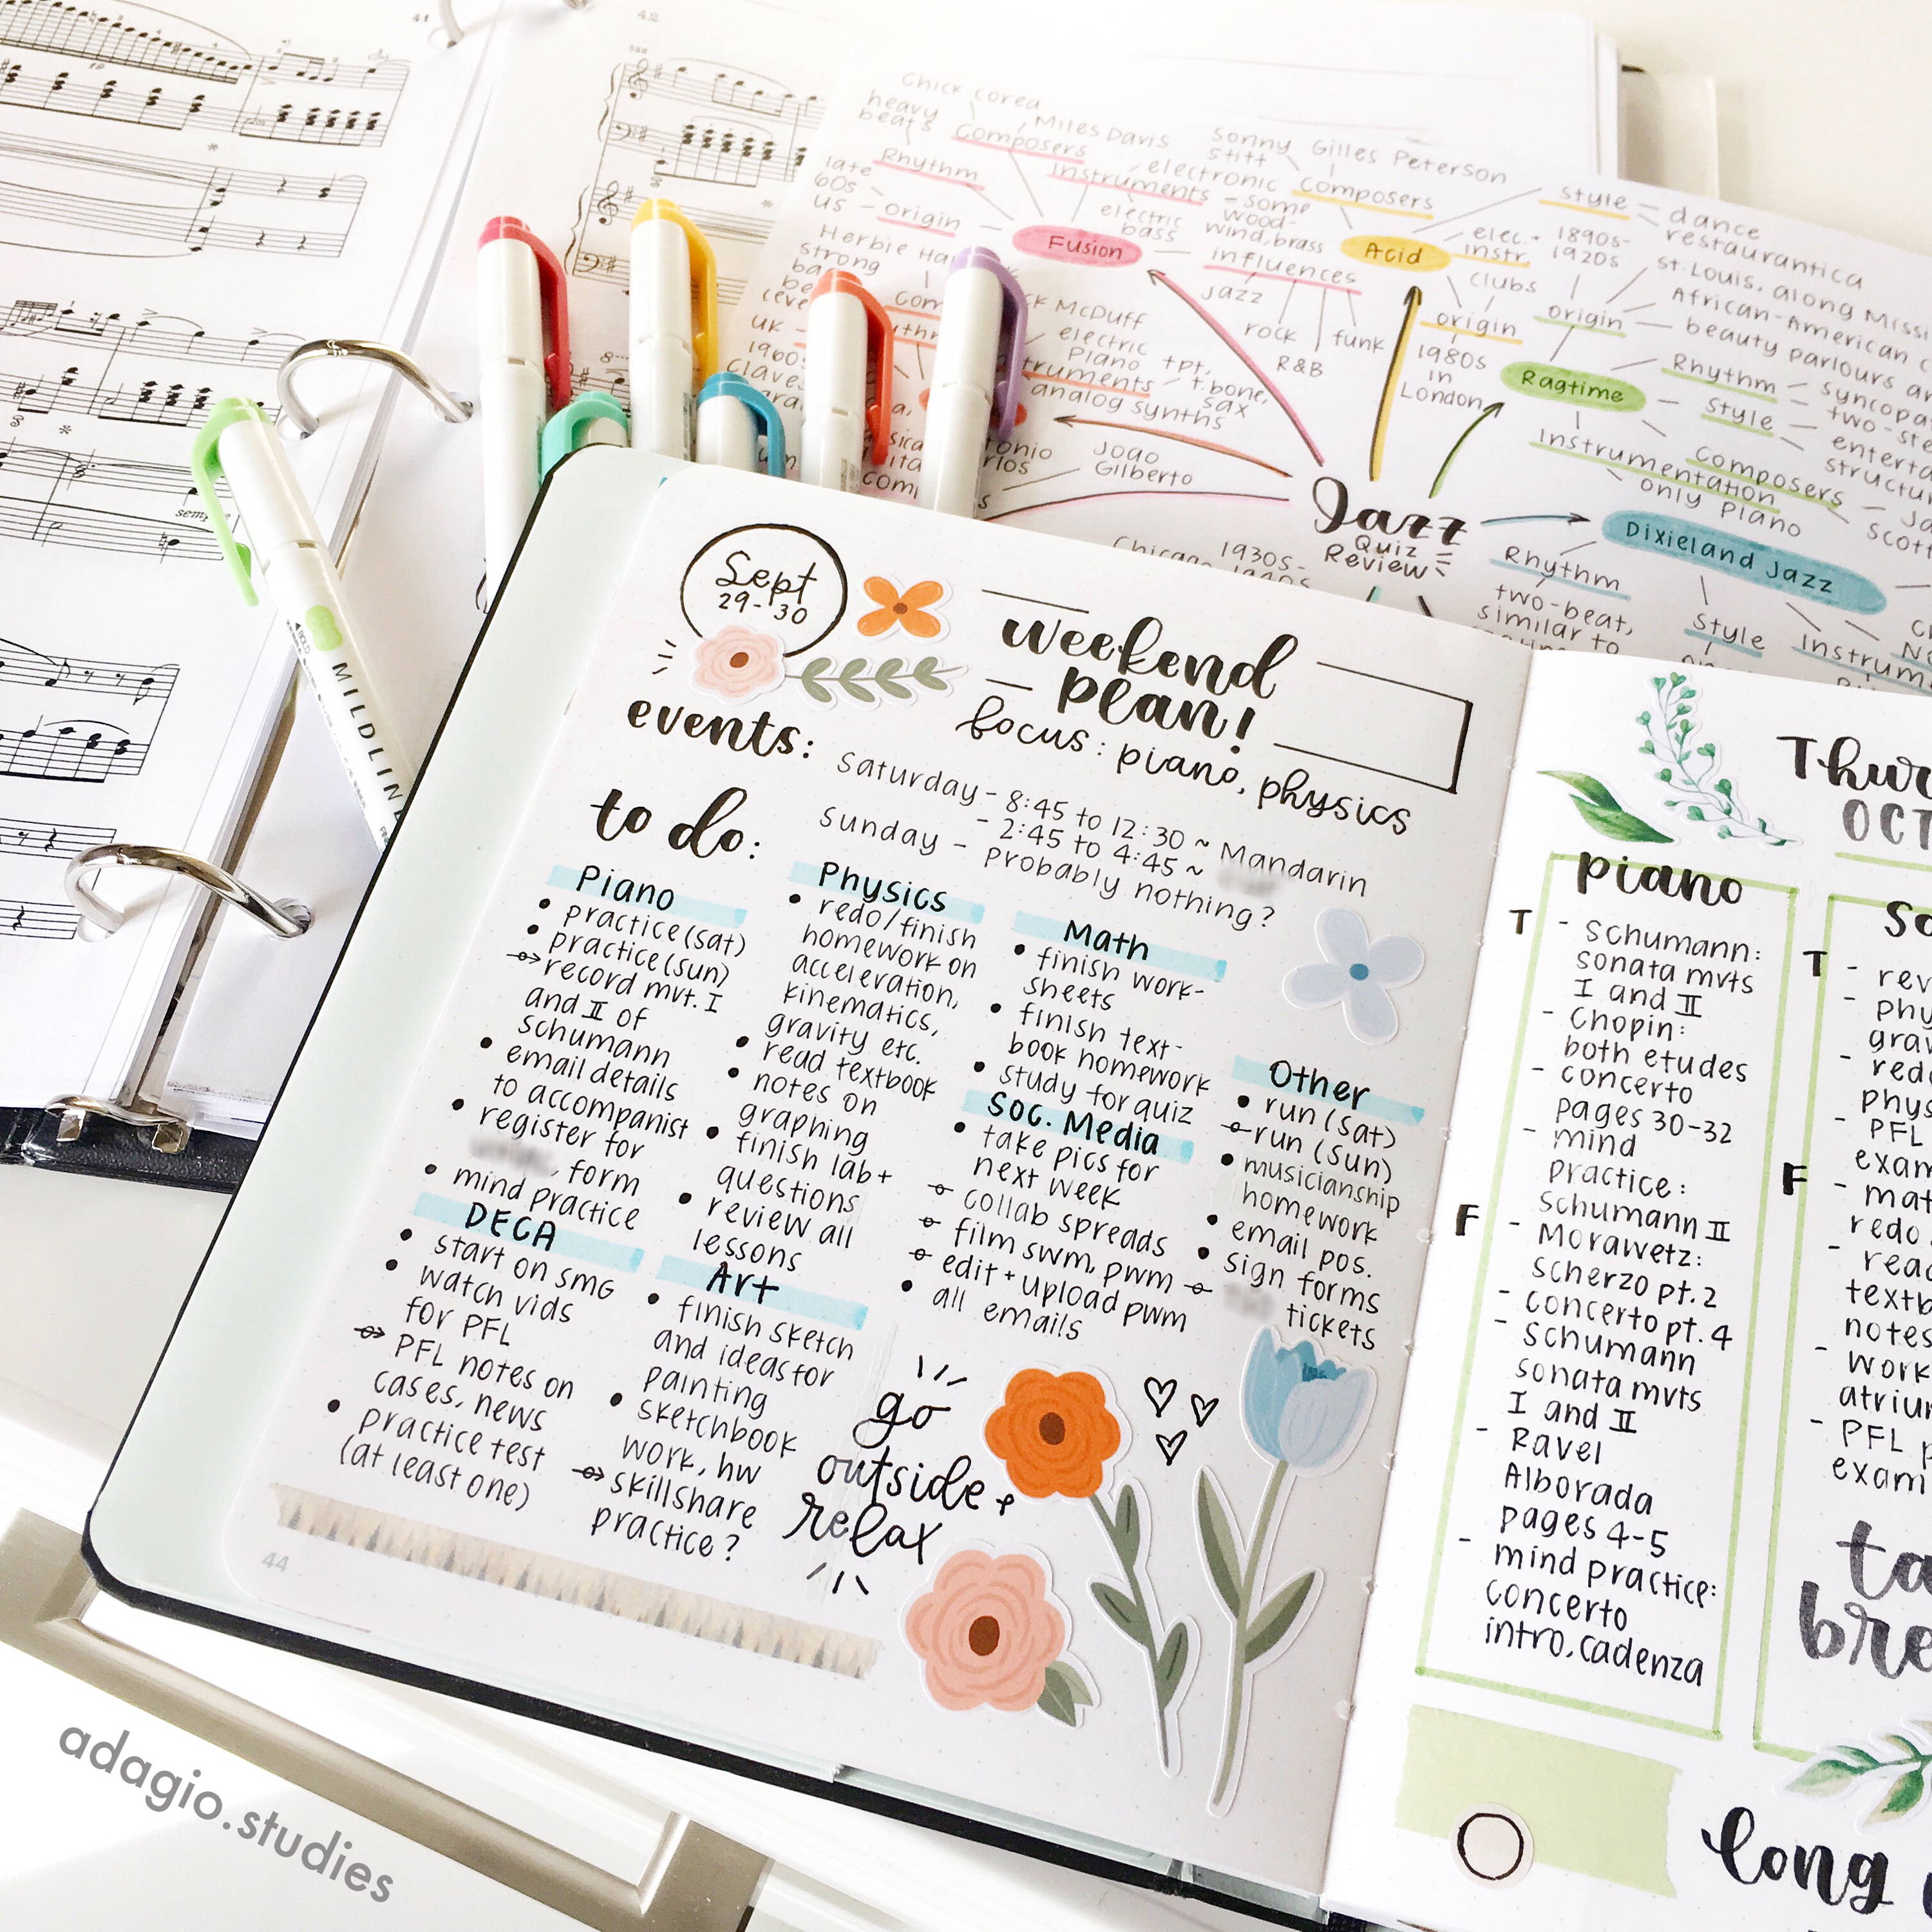 41
42
Chick Corea
heavy
beats
Composers
Miles Davis
Rhythm
late
60s
US
origin
Instruments
electronic
electric
bass
some
wood-
wind, brass
Fusion
influences
Jazz
rock
R&B
funk
Sonny
Stitt
Gilles Peterson
Composers
Acid
elec.+
instr.
clubs
origin
1980s
in
London
style
dance
restaurantica
1890s-
1920s
origin
St. Louis, along
African-American
beauty parlours
Ragtime
Rhythm
two-
Style
Instrumentation
only piano
Composers
Scott
Herbie
strong
UK
1960s
McDuff
electric
piano
tpt,
t.bone,
sax
analog synths
Joao
Gilberto
Jazz
Quiz
Review
1930s-
Dixieland Jazz
Rhythm
two-beat,
similar to
Style
MILDLINE
BOLD
Sept
29-30
weekend
plan!
focus: piano, physics
events:
Saturday - 8:45 to 12:30 ~ Mandarin
- 2:45 to 4:45 ~
Sunday - probably nothing?
to do:
Piano
• practice (sat)
• practice (sun)
record mvt. I
and II of
schumann
• email details
to accompanist
• register for
, form
• mind practice
DECA
• start on smg
• watch vids
for PFL
PFL notes on
cases, news
• practice test
(at least one)
Physics
• redo/finish
homework on
acceleration,
kinematics,
gravity etc.
• read textbook
• notes on
graphing
• finish lab+
questions
• review all
lessons
Art
• finish sketch
and ideas for
painting
• sketchbook
work, hw
skillshare
practice?
Math
• finish work-
sheets
• finish text-
book homework
• study for quiz
Soc. Media
• take pics for
next week
collab spreads
film swm, pwm
edit + upload pwm
• all emails
Other
• run (sat)
run (sun)
• musicianship
homework
• email pos.
• sign forms
tickets
go
outside +
relax
44
Piano
T
- Schumann:
sonata mvts
I and II
- Chopin:
both etudes
- concerto
pages 30-32
- mind
practice:
schumann II
F
- Morawetz:
scherzo pt. 2
- concerto pt. 4
- schumann
sonata mvts
I and II
- Ravel
Alborada
pages 4-5
- mind practice:
concerto
intro, cadenza
OCT
T
F
- PFL
textb
notes
- work
atrium
- PFL
exam
long
adagio.studies